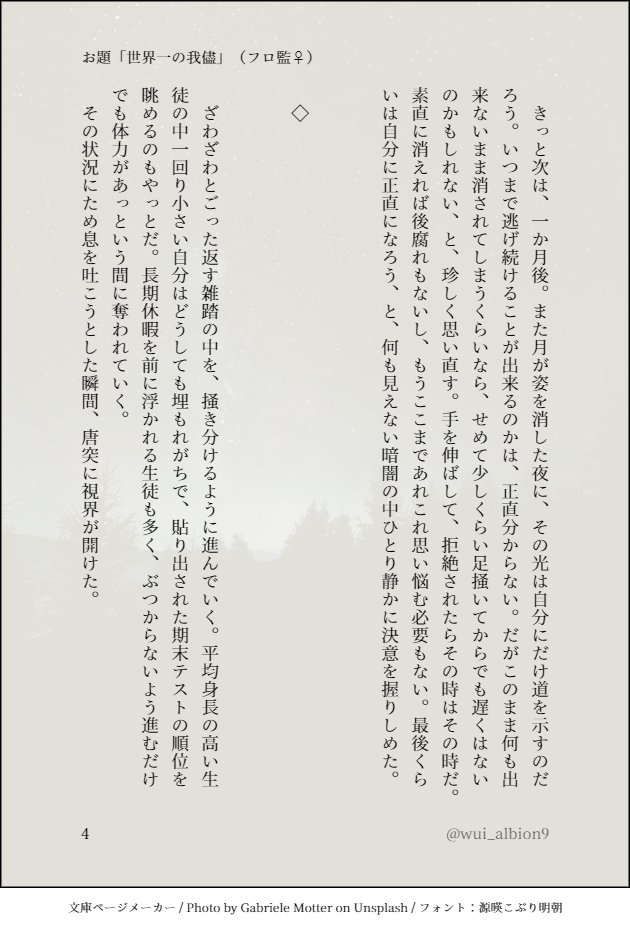 お題「世界一の我儘」（フロ監♀）
　きっと次は、一か月後。また月が姿を消した夜に、その光は自分にだけ道を示すのだ
ろう。いつまで逃げ続けることが出来るのかは、正直分からない。だがこのまま何も出
来ないまま消されてしまうくらいなら、せめて少しくらい足掻いてからでも遅くはない
のかもしれない、と、珍しく思い直す。手を伸ばして、拒絶されたらその時はその時だ。
素直に消えれば後腐れもないし、もうここまであれこれ思い悩む必要もない。最後くら
いは自分に正直になろう、と、何も見えない暗闇の中ひとり静かに決意を握りしめた。
◇
　ざわざわとごった返す雑踏の中を、掻き分けるように進んでいく。平均身長の高い生
徒の中一回り小さい自分はどうしても埋もれがちで、貼り出された期末テストの順位を
眺めるのもやっとだ。長期休暇を前に浮かれる生徒も多く、ぶつからないよう進むだけ
でも体力があっという間に奪われていく。
　その状況にため息を吐こうとした瞬間、唐突に視界が開けた。
4
@wui_albion9
文庫ページメーカー / Photo by Gabriele Motter on Unsplash / フォント：源暎こぶり明朝